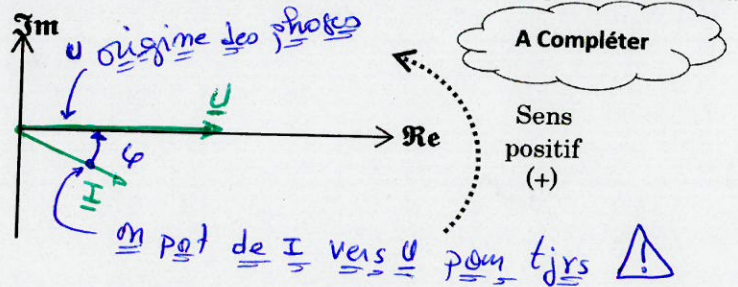 ℑm
U origine des phases
A Compléter
U
ℜe
Sens
positif
(+)
φ
I
on part de I vers U pour tjrs
!